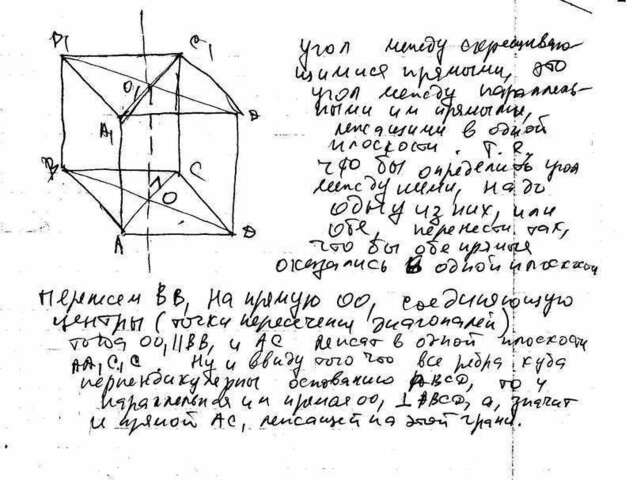 B1
C1
O1
A1
D
B
C
O
A
D
угол между скрещиваю
щимися прямыми, это
угол между параллель-
ными им прямыми,
лежащими в одной
плоскости. Т.е.
что бы определить угол
между ними, надо
одну из них, или
обе, перенести так,
что бы обе прямые
оказались в одной плоскости
Перенесем BB, на прямую OO, соединяющую
центры (точки пересечения диагоналей)
тогда OO,||BB, и AC лежат в одной плоскости
AA,C,C Ну и ввиду того что все ребра куба
перпендикулярны основанию ABCD, то и
параллельная им прямая OO, ⊥ ABCD, а, значит
и прямой AC, лежащей на этой грани.